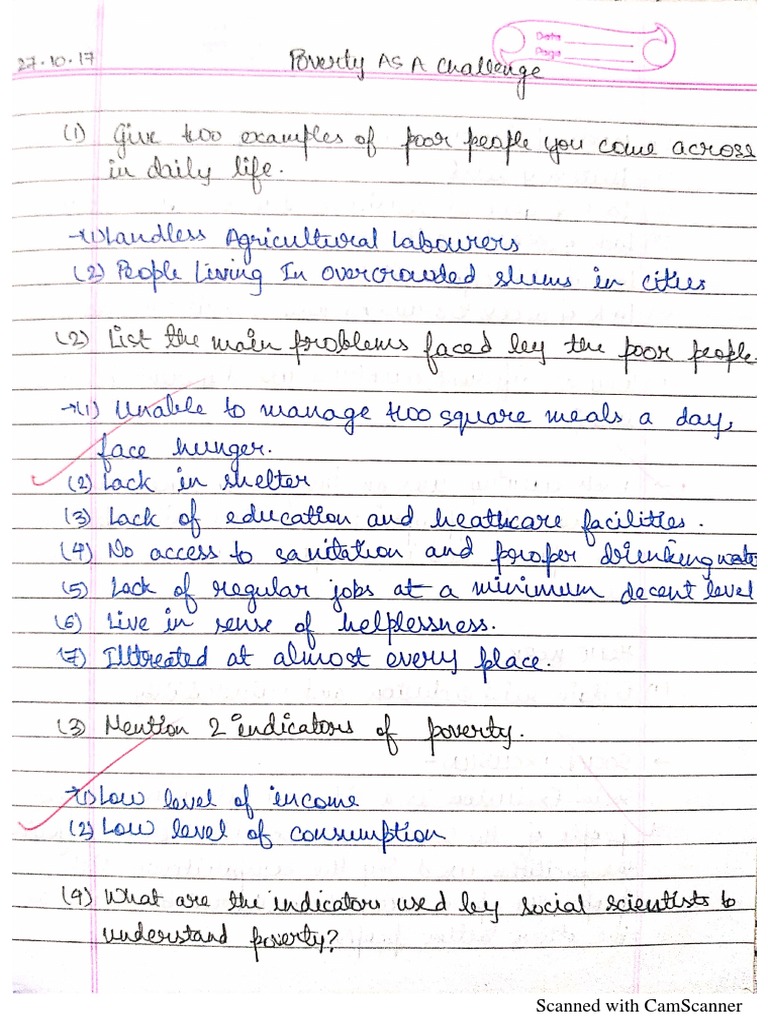 Date
Page
27.10.17 Poverty As A Challenge
(1) Give two examples of poor people you come across
in daily life.
→(1) Landless Agricultural Labourers
(2) People Living In overcrowded slums in cities
(2) List the main problems faced by the poor people.
→(1) Unable to manage two square meals a day,
face hunger.
(2) Lack in shelter
(3) Lack of education and heathcare facilities.
(4) No access to sanitation and proper drinking water
(5) Lack of regular jobs at a minimum decent level
(6) Live in sense of helplessness.
(7) Illtreated at almost every place.
(3) Mention 2 indicators of poverty.
→(1) Low level of income
(2) Low level of consumption
(4) What are the indicators used by social scientists to
understand poverty?
Scanned with CamScanner